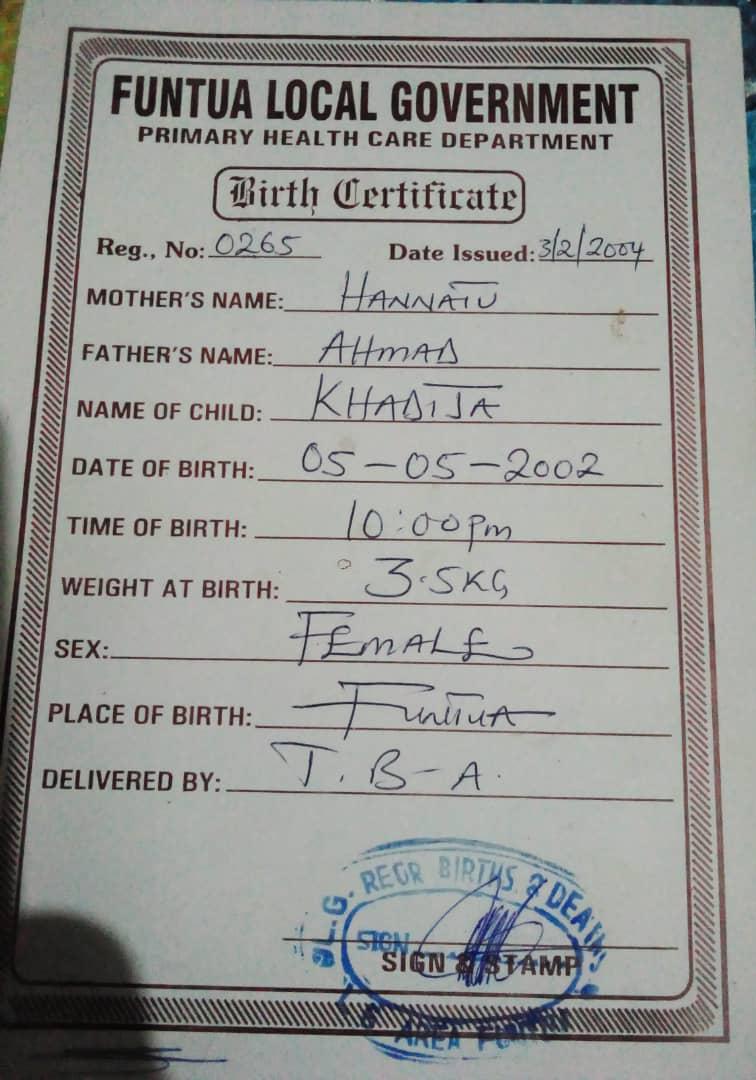 FUNTUA LOCAL GOVERNMENT
PRIMARY HEALTH CARE DEPARTMENT
Birth Certificate
Reg., No: 0265 Date Issued: 3/2/2004
MOTHER'S NAME: HANNATU
FATHER'S NAME: AHMAD
NAME OF CHILD: KHADIJA
DATE OF BIRTH: 05-05-2002
TIME OF BIRTH: 10:00pm
WEIGHT AT BIRTH: 3.5KG
SEX: FEMALE
PLACE OF BIRTH: FUNTUA
DELIVERED BY: T.B-A.
REGR BIRTHS & DEATHS
SIGN
SIGN & STAMP
AREA